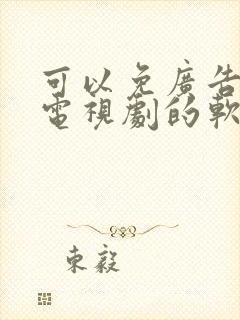 可以免廣告
電視劇的軟
東毅